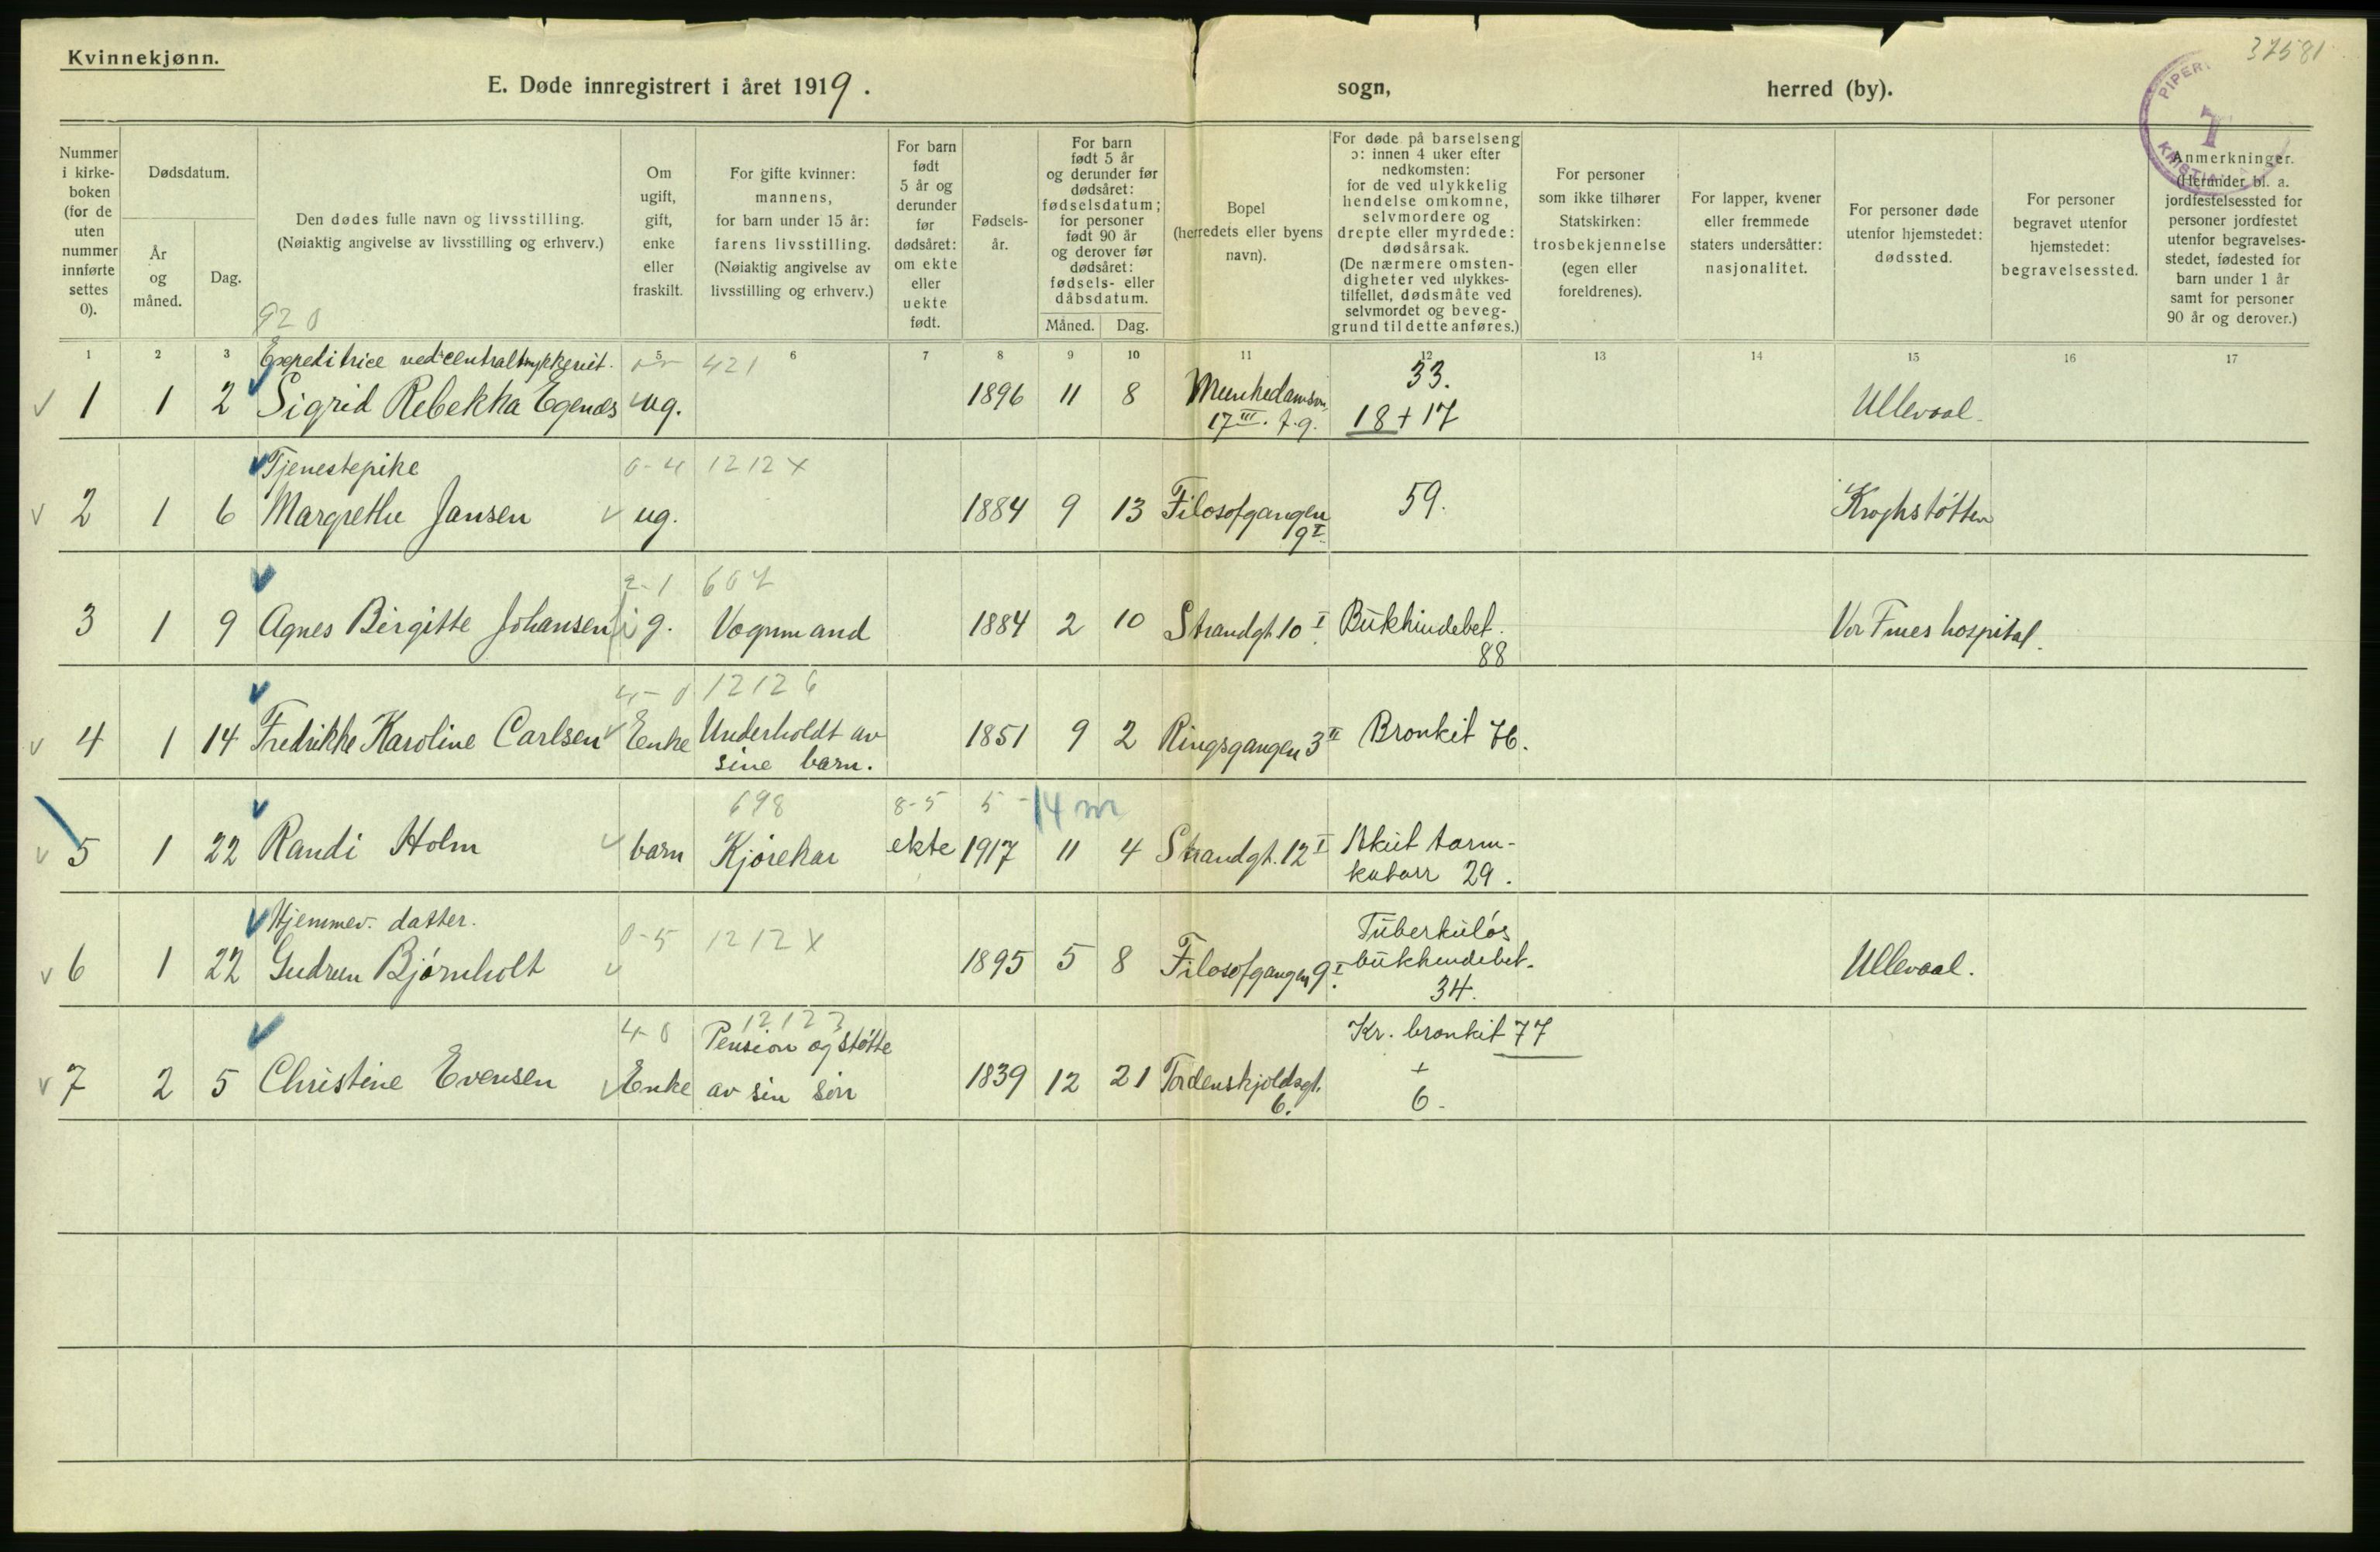 Kvinnekjønn.
37581
E. Døde innregistrert i året 1919. sogn, herred (by).
PIPER
7
KRISTIA
Nummer i kirke-boken (for de uten nummer innførte settes 0).
Dødsdatum.
År og måned.
Dag.
Den dødes fulle navn og livsstilling.
(Nøiaktig angivelse av livsstilling og erhverv.)
920
Om ugift, gift, enke eller fraskilt.
For gifte kvinner: mannens, for barn under 15 år: farens livsstilling. (Nøiaktig angivelse av livsstilling og erhverv.)
For barn født 5 år og derunder før dødsåret: om ekte eller uekte født.
Fødsels-år.
For barn født 5 år og derunder før dødsåret: fødselsdatum; for personer født 90 år og derover før dødsåret: fødsels- eller dåbsdatum.
Måned. Dag.
Bopel (herredets eller byens navn).
For døde på barselseng ɔ: innen 4 uker efter nedkomsten: for de ved ulykkelig hendelse omkomne, selvmordere og drepte eller myrdede: dødsårsak. (De nærmere omsten-digheter ved ulykkes-tilfellet, dødsmåte ved selvmordet og beveg-grund til dette anføres.)
For personer som ikke tilhører Statskirken: trosbekjennelse (egen eller foreldrenes).
For lapper, kvener eller fremmede staters undersåtter: nasjonalitet.
For personer døde utenfor hjemstedet: dødssted.
For personer begravet utenfor hjemstedet: begravelsessted.
Anmerkninger. (Herunder bl. a. jordfestelsessted for personer jordfestet utenfor begravelses-stedet, fødested for barn under 1 år samt for personer 90 år og derover.)
1 2 3 5 6 7 8 9 10 11 12 13 14 15 16 17
Expeditrice ved centraltrykkeriet. 421 33.
1 1 2 Sigrid Rebekka Egenæs ug. 1896 11 8 Munkedamsv. Ullevaal.
17 III. t.g. 18+17
Tjenestepike 0-4 1212 x
2 1 6 Margrethe Jansen ug. 1884 9 13 Filosofgangen 59. Kroghstøtten
9 I.
2-1 607
3 1 9 Agnes Birgitte Johansen g. Vognmand 1884 2 10 Strandgt. 10 I Bukhindebet. Vor Frues hospital.
88
4-0 12126
4 1 14 Fredrikke Karoline Carlsen Enke Underholdt av 1851 9 2 Ringsgangen 3 II Bronkit 76.
sine barn.
698 8-5 5- 14 m
5 1 22 Randi Holm barn Kjørekar ekte 1917 11 4 Strandgt. 12 I Akut tarm-
katarr 29.
Hjemmev. datter. 0-5 1212 x Tuberkuløs
6 1 22 Gudrun Bjørnholt 1895 5 8 Filosofgangen 9 I. bukhindebet. Ullevaal.
34.
4-0 12123 Kr. bronkit 77
Pension og støtte +
7 2 5 Christine Evensen Enke av sin søn 1839 12 21 Tordenskjoldsgt. 6.
6.